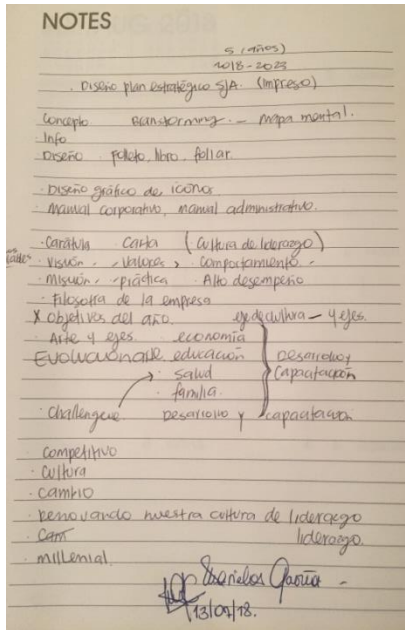 NOTES
5 (años)
2018-2023
. Diseño plan estratégico S/A. (Impreso)
Concepto Brainstorming - mapa mental.
. Info
Diseño folleto, libro, foliar
. Diseño gráfico de iconos
. Manual corporativo, manual administrativo.
. Carátula Carta (Cultura de liderazgo)
. Visión, . Valores, . Comportamiento.
. Misión, . práctica . Alto desempeño
. Filosofía de la empresa
X objetivos del año. eje de cultura - 4 ejes.
. Arte 4 ejes. economía
educación Desarrollo y
. salud Capacitación
. familia
. Challengeve. Desarrollo y capacitación.
competitivo
. Cultura
. cambio
. Renovando nuestra cultura de liderazgo
liderazgo.
. Cam
. millenial.
García -
13/07/18.